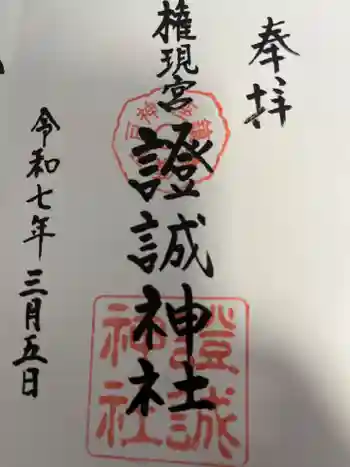 奉拝
権現宮
證誠神社
令和七年三月五日
證誠
神社